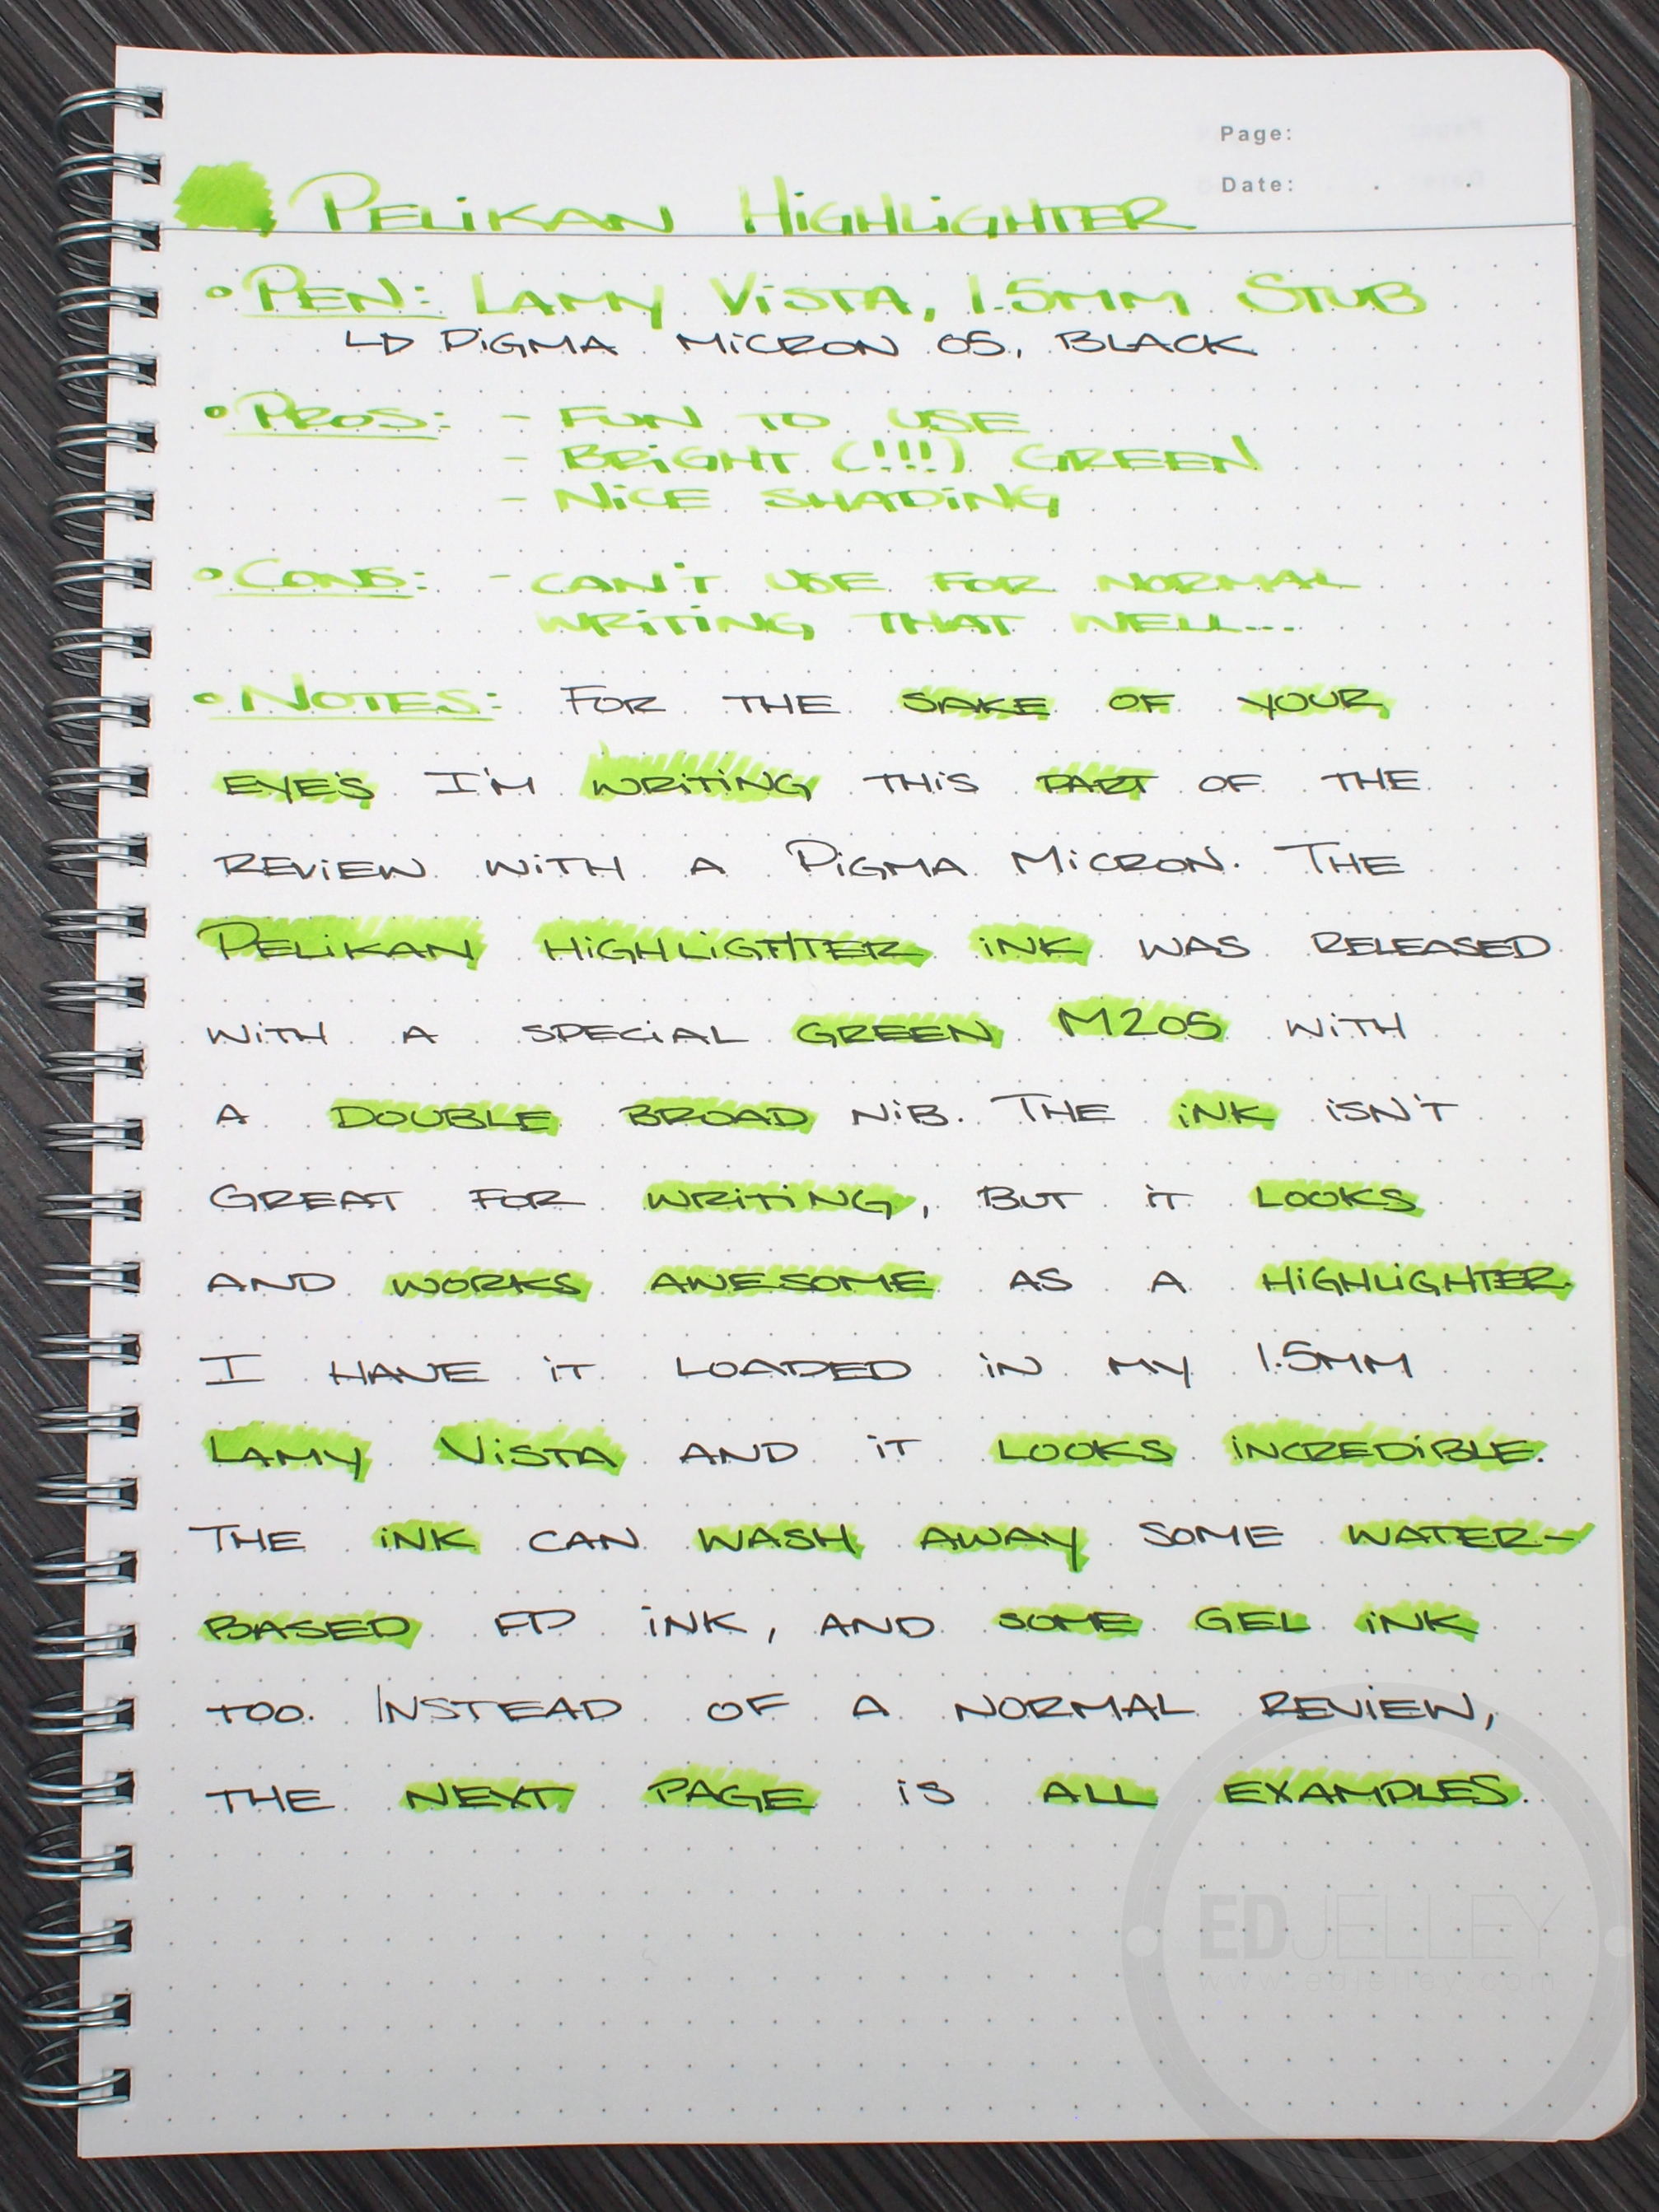 Page:
Date: . .
PELiKAN HiGHLiGHTER
• PEN: LAMY ViSTA, 1.5MM STUB
↳ PiGMA MiCRON 05, BLACK
• PROS: - FUN TO USE
- BRiGHT (!!!) GREEN
- NiCE SHADiNG
• CONS: - CAN'T USE FOR NORMAL
WRiTiNG THAT WELL...
• NOTES: FOR THE SAKE OF YOUR
EYE'S I'M WRiTiNG THiS PART OF THE
REViEW WiTH A PiGMA MiCRON. THE
PELiKAN HiGHLiGHTER iNK WAS RELEASED
WiTH A SPECiAL GREEN M205 WiTH
A DOUBLE BROAD NiB. THE iNK iSN'T
GREAT FOR WRiTiNG, BUT iT LOOKS
AND WORKS AWESOME AS A HiGHLiGHTER.
I HAVE iT LOADED iN MY 1.5MM
LAMY ViSTA AND iT LOOKS iNCREDiBLE.
THE iNK CAN WASH AWAY SOME WATER-
BASED FP iNK, AND SOME GEL iNK
TOO. INSTEAD OF A NORMAL REViEW,
THE NEXT PAGE iS ALL EXAMPLES.
EDJELLEY
www.edjelley.com